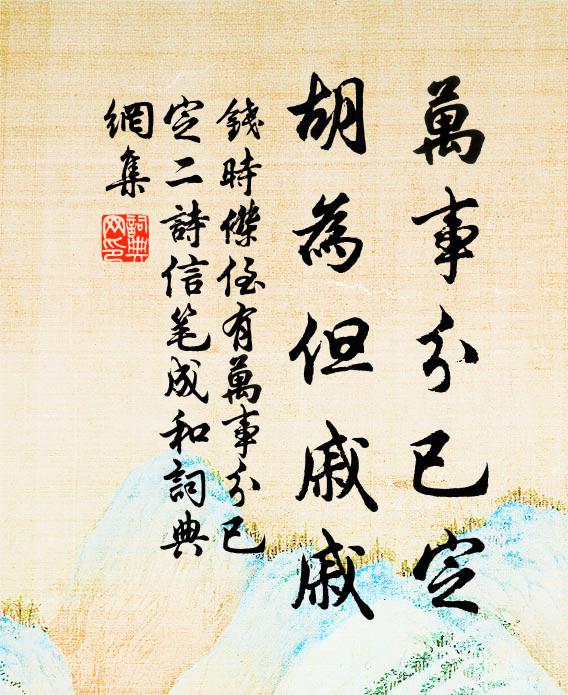 萬事分已定
胡為但戚戚
錢時傑侄有萬事分已
定二詩信笔成和詞典
網集
詞典
网印